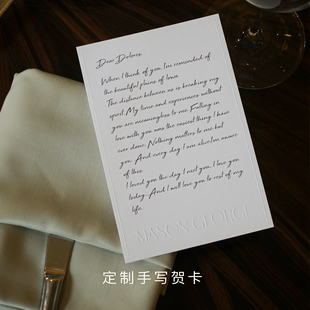 Dear Dolores,
When I think of you I'm reminded of
the beautiful plains of Iowa.
The distance between us is breaking my
spirit. My time and experiences without
you are meaningless to me. Falling in
love with you was the easiest thing I have
ever done. Nothing matters to me but
you. And every day I am alive I'm aware
of this.
I loved you the day I met you, I love you
today. And I will love you to rest of my
life.
MASON GEORGE
定制手写贺卡